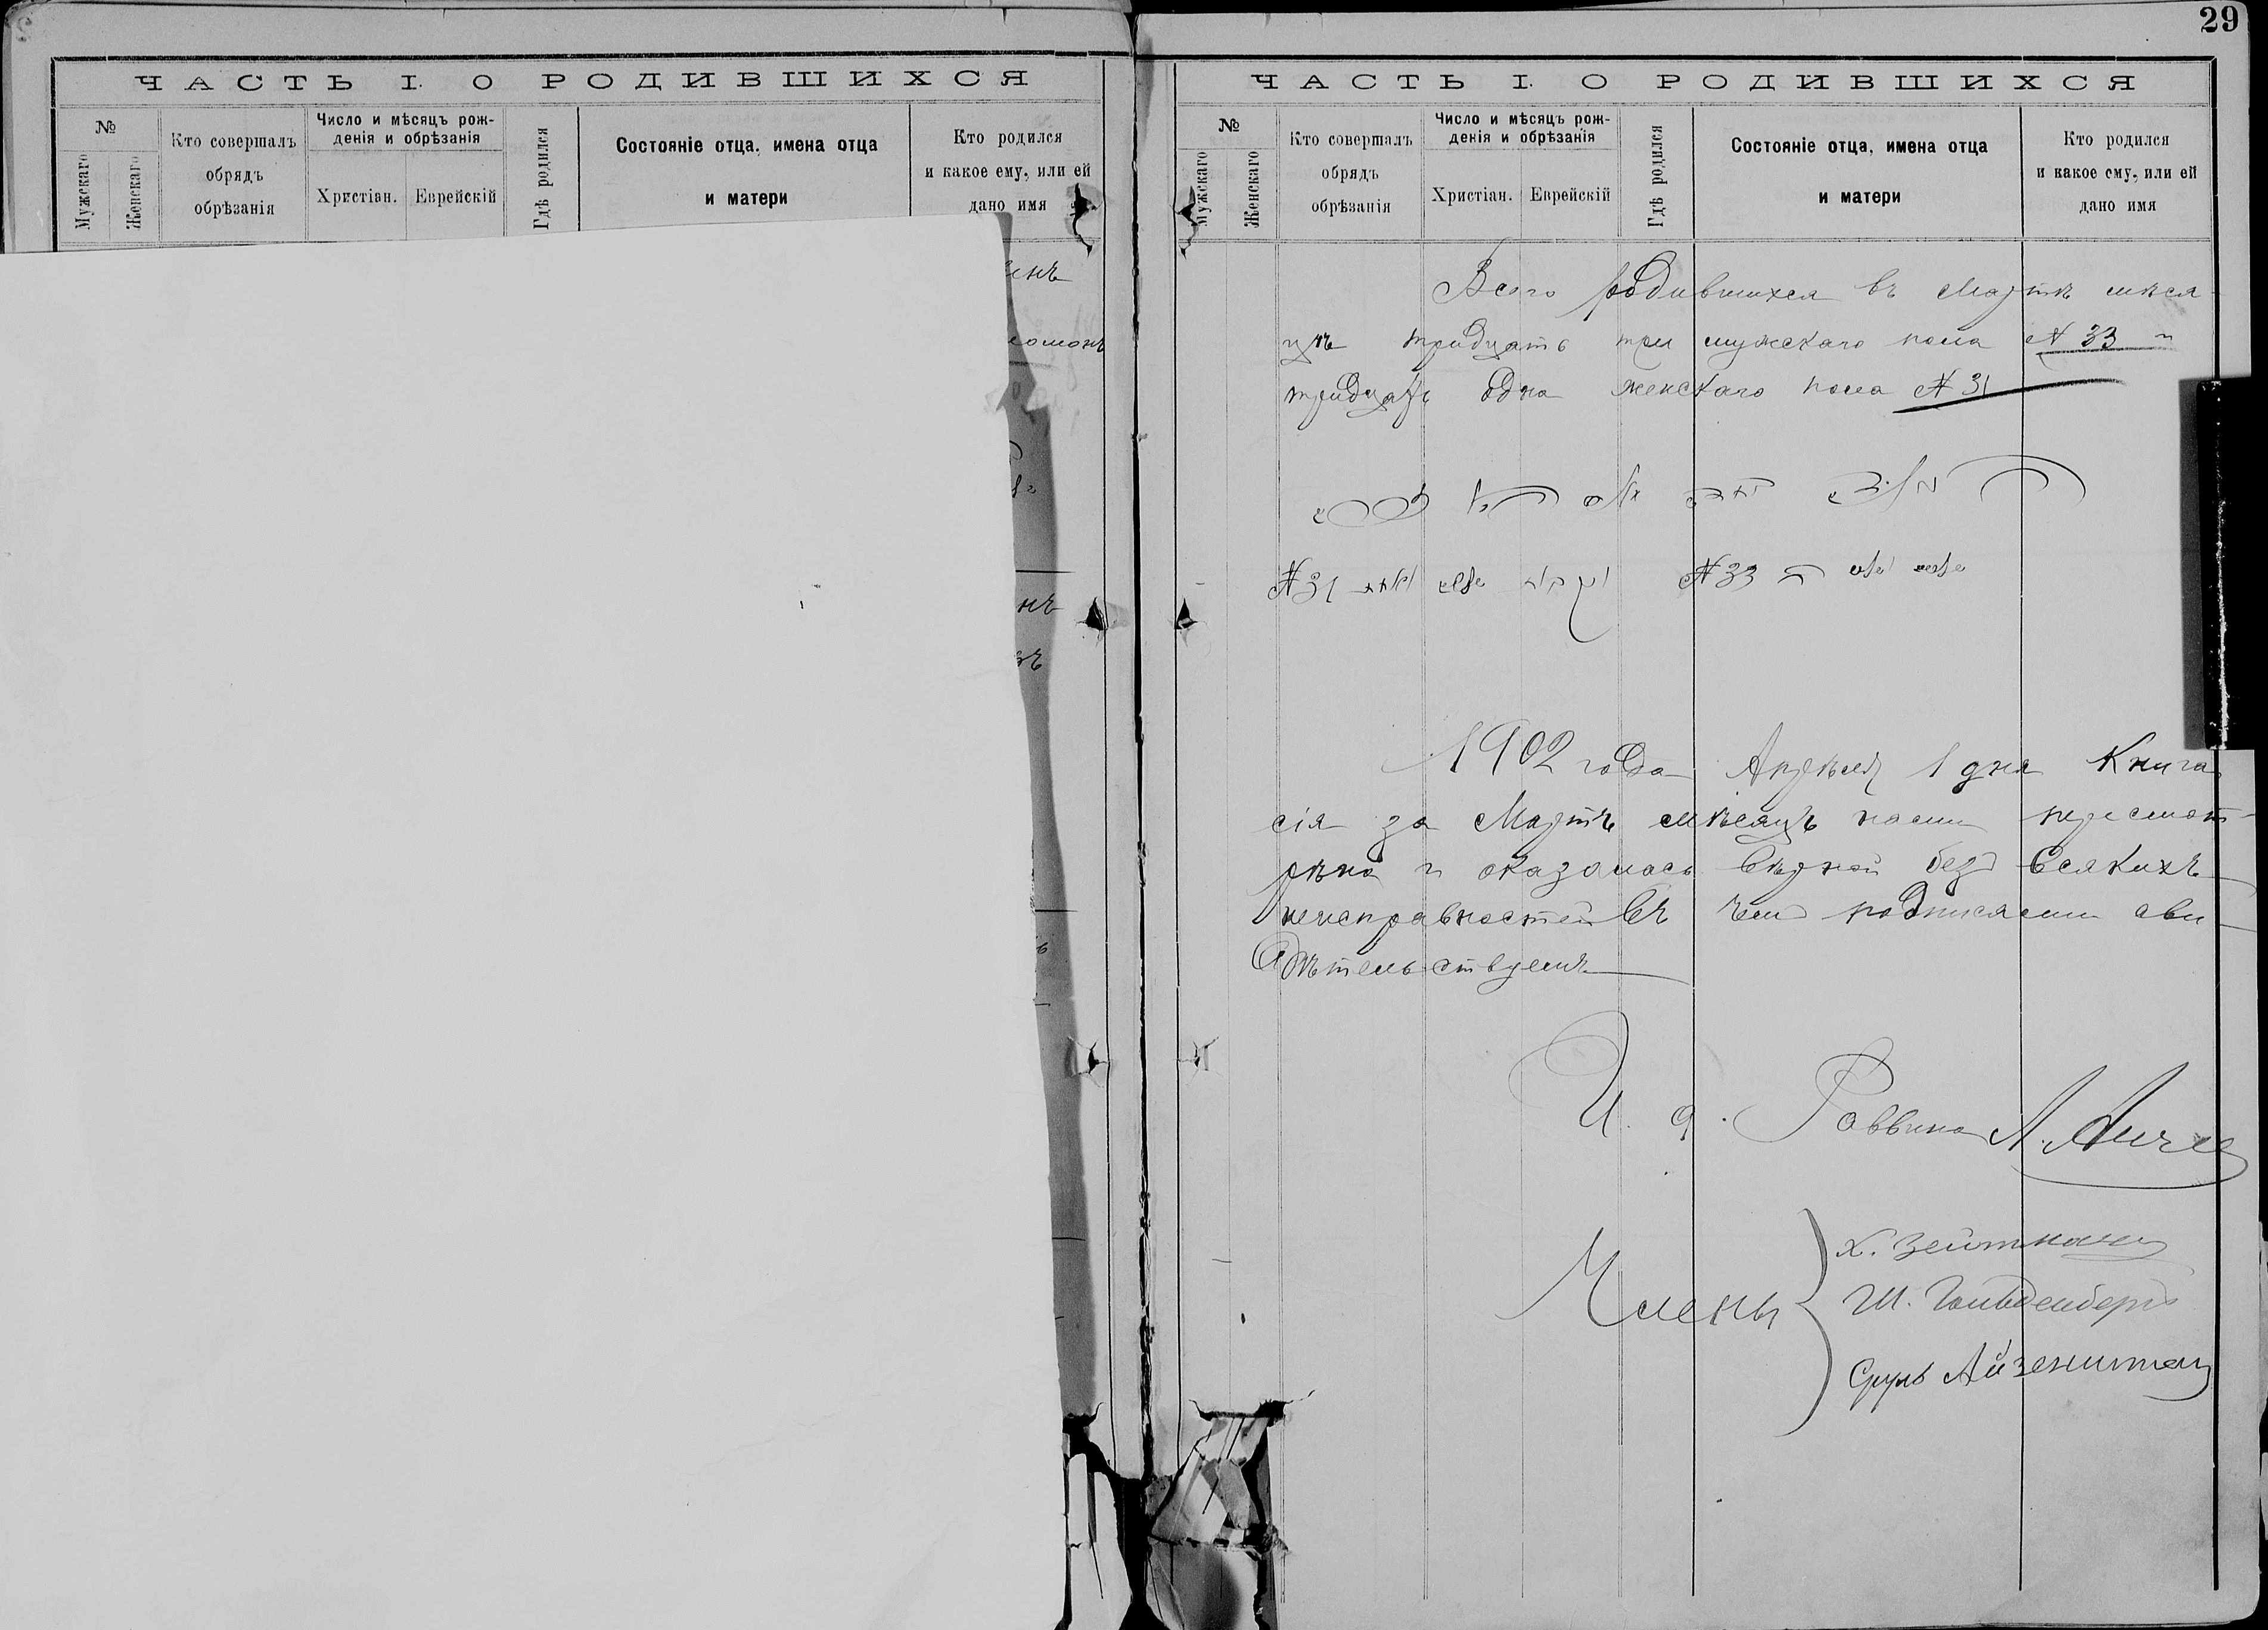 29
ЧАСТЬ I. О РОДИВШИХСЯ
№
Мужскаго
Женскаго
Кто совершалъ
обрядъ
обрѣзанія
Число и мѣсяцъ рож-
денія и обрѣзанія
Христіан. Еврейскій
Гдѣ родился
Состояніе отца, имена отца
и матери
Кто родился
и какое ему, или ей
дано имя
инъ
омонъ
нъ
ЧАСТЬ I. О РОДИВШИХСЯ
№
Мужскаго
Женскаго
Кто совершалъ
обрядъ
обрѣзанія
Число и мѣсяцъ рож-
денія и обрѣзанія
Христіан. Еврейскій
Гдѣ родился
Состояніе отца, имена отца
и матери
Кто родился
и какое ему, или ей
дано имя
Всего родившихся въ Мартѣ мѣся
цѣ тридцать три мужскаго пола № 33 и
тридцать одна женскаго пола № 31
№ 31 № 33
1902 года Апрѣля 1 дня Книга
сія за Мартъ мѣсяцъ нами пересмот-
рѣна и оказалась вѣрной безъ всякихъ
неисправностей въ чемъ подписями сви
дѣтельствуемъ
И. д. Раввина
Члены
Х. Зейтманъ
Ш. Гольденбергъ
Сруль Айзенштейн